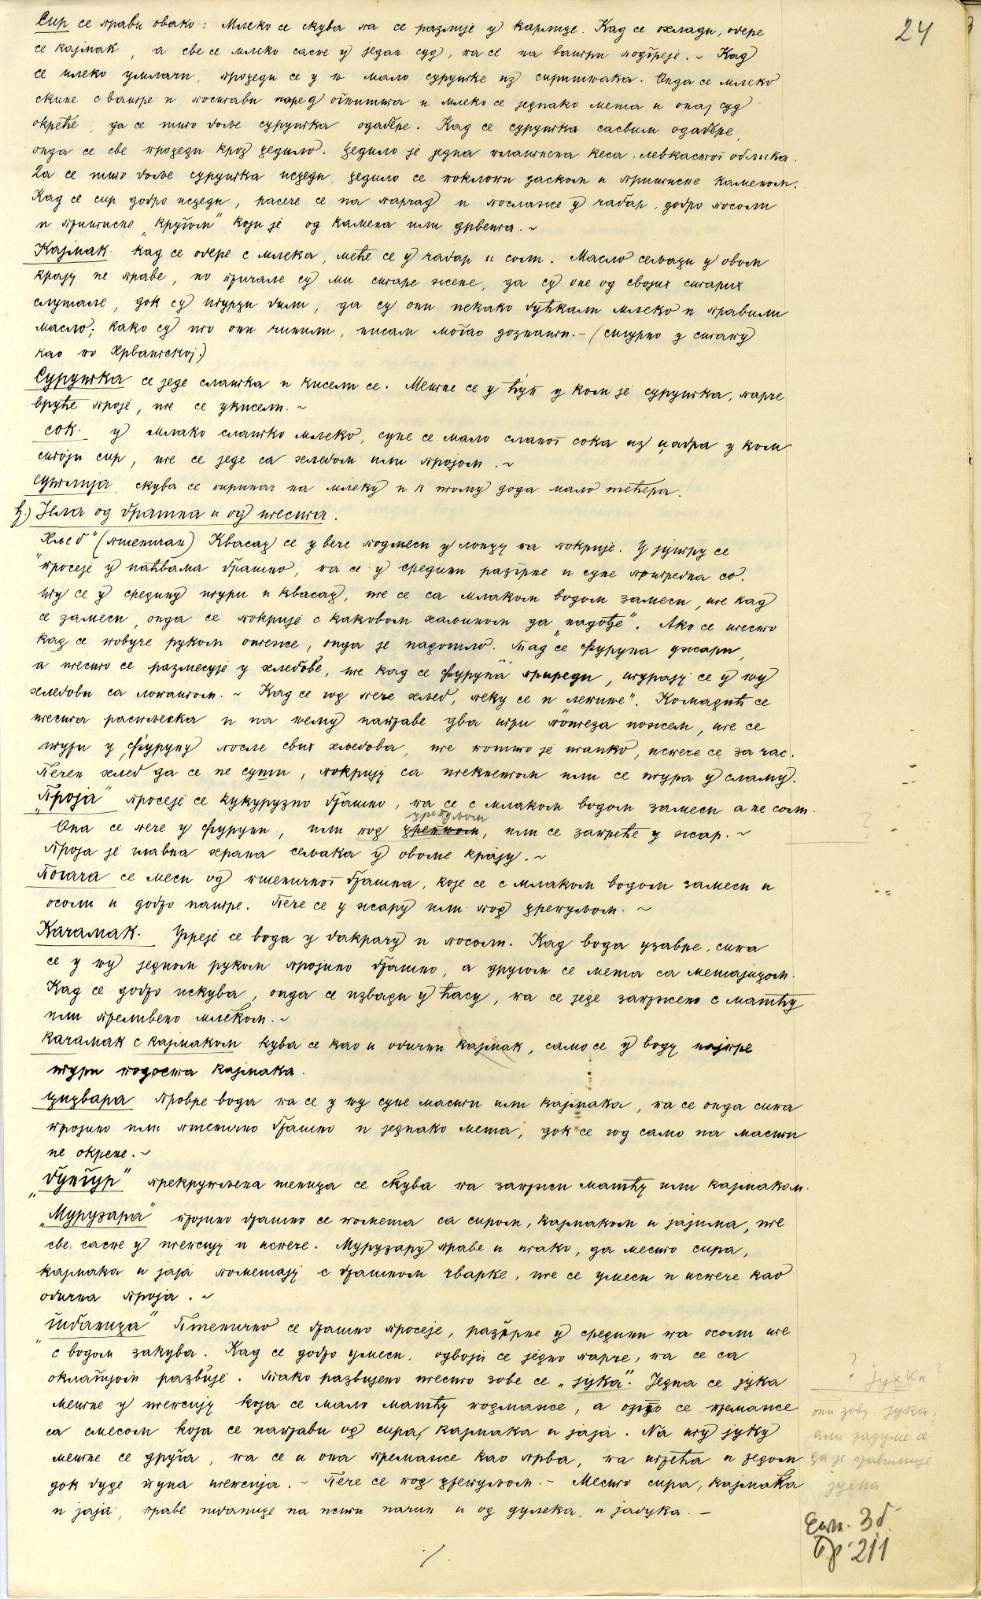 24
Сир се прави овако: Млеко се скува па се разлије у карлице. Кад се охлади, обере
се кајмак, а све се млеко саспе у један суд, па се на ватри подгреје. – Кад
се млеко умлачи, процеди се у њ мало сурутке из сиришњака. Онда се млеко
скине с ватре и постави поред огњишта и млеко се једнако мета и онај суд
окреће да се што боље сурутка одабере. Кад се сурутка сасвим одабере,
онда се све процеди кроз цедило. Цедило је једна платнена кеса левкастог облика.
Да се што боље сурутка исцеди цедило се поклопи даском и притисне каменом.
Кад се сир добро исцеди, насече се на парчад и послаже у чабар добро посоли
и притисне „кругом" који је од камена или дрвета. ~
Кајмак кад се обере с млека, меће се у чабар и соли. Масло сељаци у овом
крају не праве, но причале су ми старе жене, да су оне од својих старих
слушале, док су турци били, да су они некако бућкали млеко и правили
масло; како су то они чинили, нисам могао дознати. – (сигурно у стапу
као по Хрватској)
Сурутка се једе слатка и кисели се. Метне се у ћуп у ком је сурутка, парче
вруће проје, те се укисели. ~
Сок. у млако слатко млеко, сипе се мало сланог сока из чабра у ком
стоји сир, те се једе са хлебом или пројом. ~
Сутлија скува се пиринач на млеку и к тому дода мало шећера.
ђ) Јела од брашна и од теста.
„Хлеб" (пшеничан) Квасац се увече подмеси у лонцу па покрије. У јутру се
просеје у наћвама брашно, па се у средини разгрне и сипе потребна со.
Ту се у средину тури и квасац, те се са млаком водом замеси, те кад
се замеси, онда се покрије с каковом хаљином да „надође". Ако се тесто
кад се повуче руком отеже, онда је надошло. Тад се фуруна ужари,
а тесто се размесује у хлебове, те кад се фуруна приреди, турају се у њу
хлебови са лопатом. ~ Кад се год пече хлеб, пеку се и „лепиње". Комадић се
теста распљеска и на њему направе два три потеза ножем, те се
тури у фуруну после свих хлебова, те пошто је танко, испече се за час.
Печен хлеб да се не суши, покрију са текнетом или се тура у сламу.
„Проја" просеје се кукурузно брашно, па се с млаком водом замеси а не соли.
црепуљом
Она се пече у фуруни, или под црепном, или се запреће у жар. ~
Проја је главна храна сељака у овоме крају. ~
Погача се меси од пшеничног брашна, које се с млаком водом замеси и
осоли и добро напре. Пече се у жару или под црепуљом. ~
Качамак. Угреје се вода у бакрачу и посоли. Кад вода узавре, сипа
се у њу једном руком пројино брашно, а другом се мета са метајицом.
Кад се добро искува, онда се извади у ћасу, па се једе запржено с машћу
или преливено млеком. ~
Качамак с кајмаком кува се као и обични кајмак, само се у воду најпре
тури подоста кајмака.
Цицвара провре вода па се у њу сипе масти или кајмака, па се онда сипа
пројино или пшенично брашно и једнако мета, док се год само на масти
не окрене. ~
„Булгур" прекрупљена шеница се скува па запржи машћу или кајмаком.
„Мурузара" пројино брашно се помета са сиром, кајмаком и јајима, те
све саспе у тепсију и испече. Мурузару праве и тако, да место сира,
кајмака и јаја пометају с брашном чварке, те се умеси и испече као
обична проја. ~
„Гибаница" Пшенично се брашно просеје, разгрне у средини па осоли те
с водом закува. Кад се добро умеси, одвоји се једно парче, па се са
оклагијом развије. Тако развијено тесто зове се „јука". Једна се јука
метне у тепсију која се мало машћу подмаже, а озго се премаже
са смесом која се направи од сира, кајмака и јаја. На ту јуку
метне се друга, па се и она премаже као прва, па трећа и редом
док буде пуна тепсија. – Пече се под црепуљом. – Место сира, кајмака
и јаја, праве гибанице на исти начин и од дулека, и јабука. –
? јуҳка
они зову јука,
али разуме се
да је правилније
јуҳка
Етн. Зб.
Бр. 211